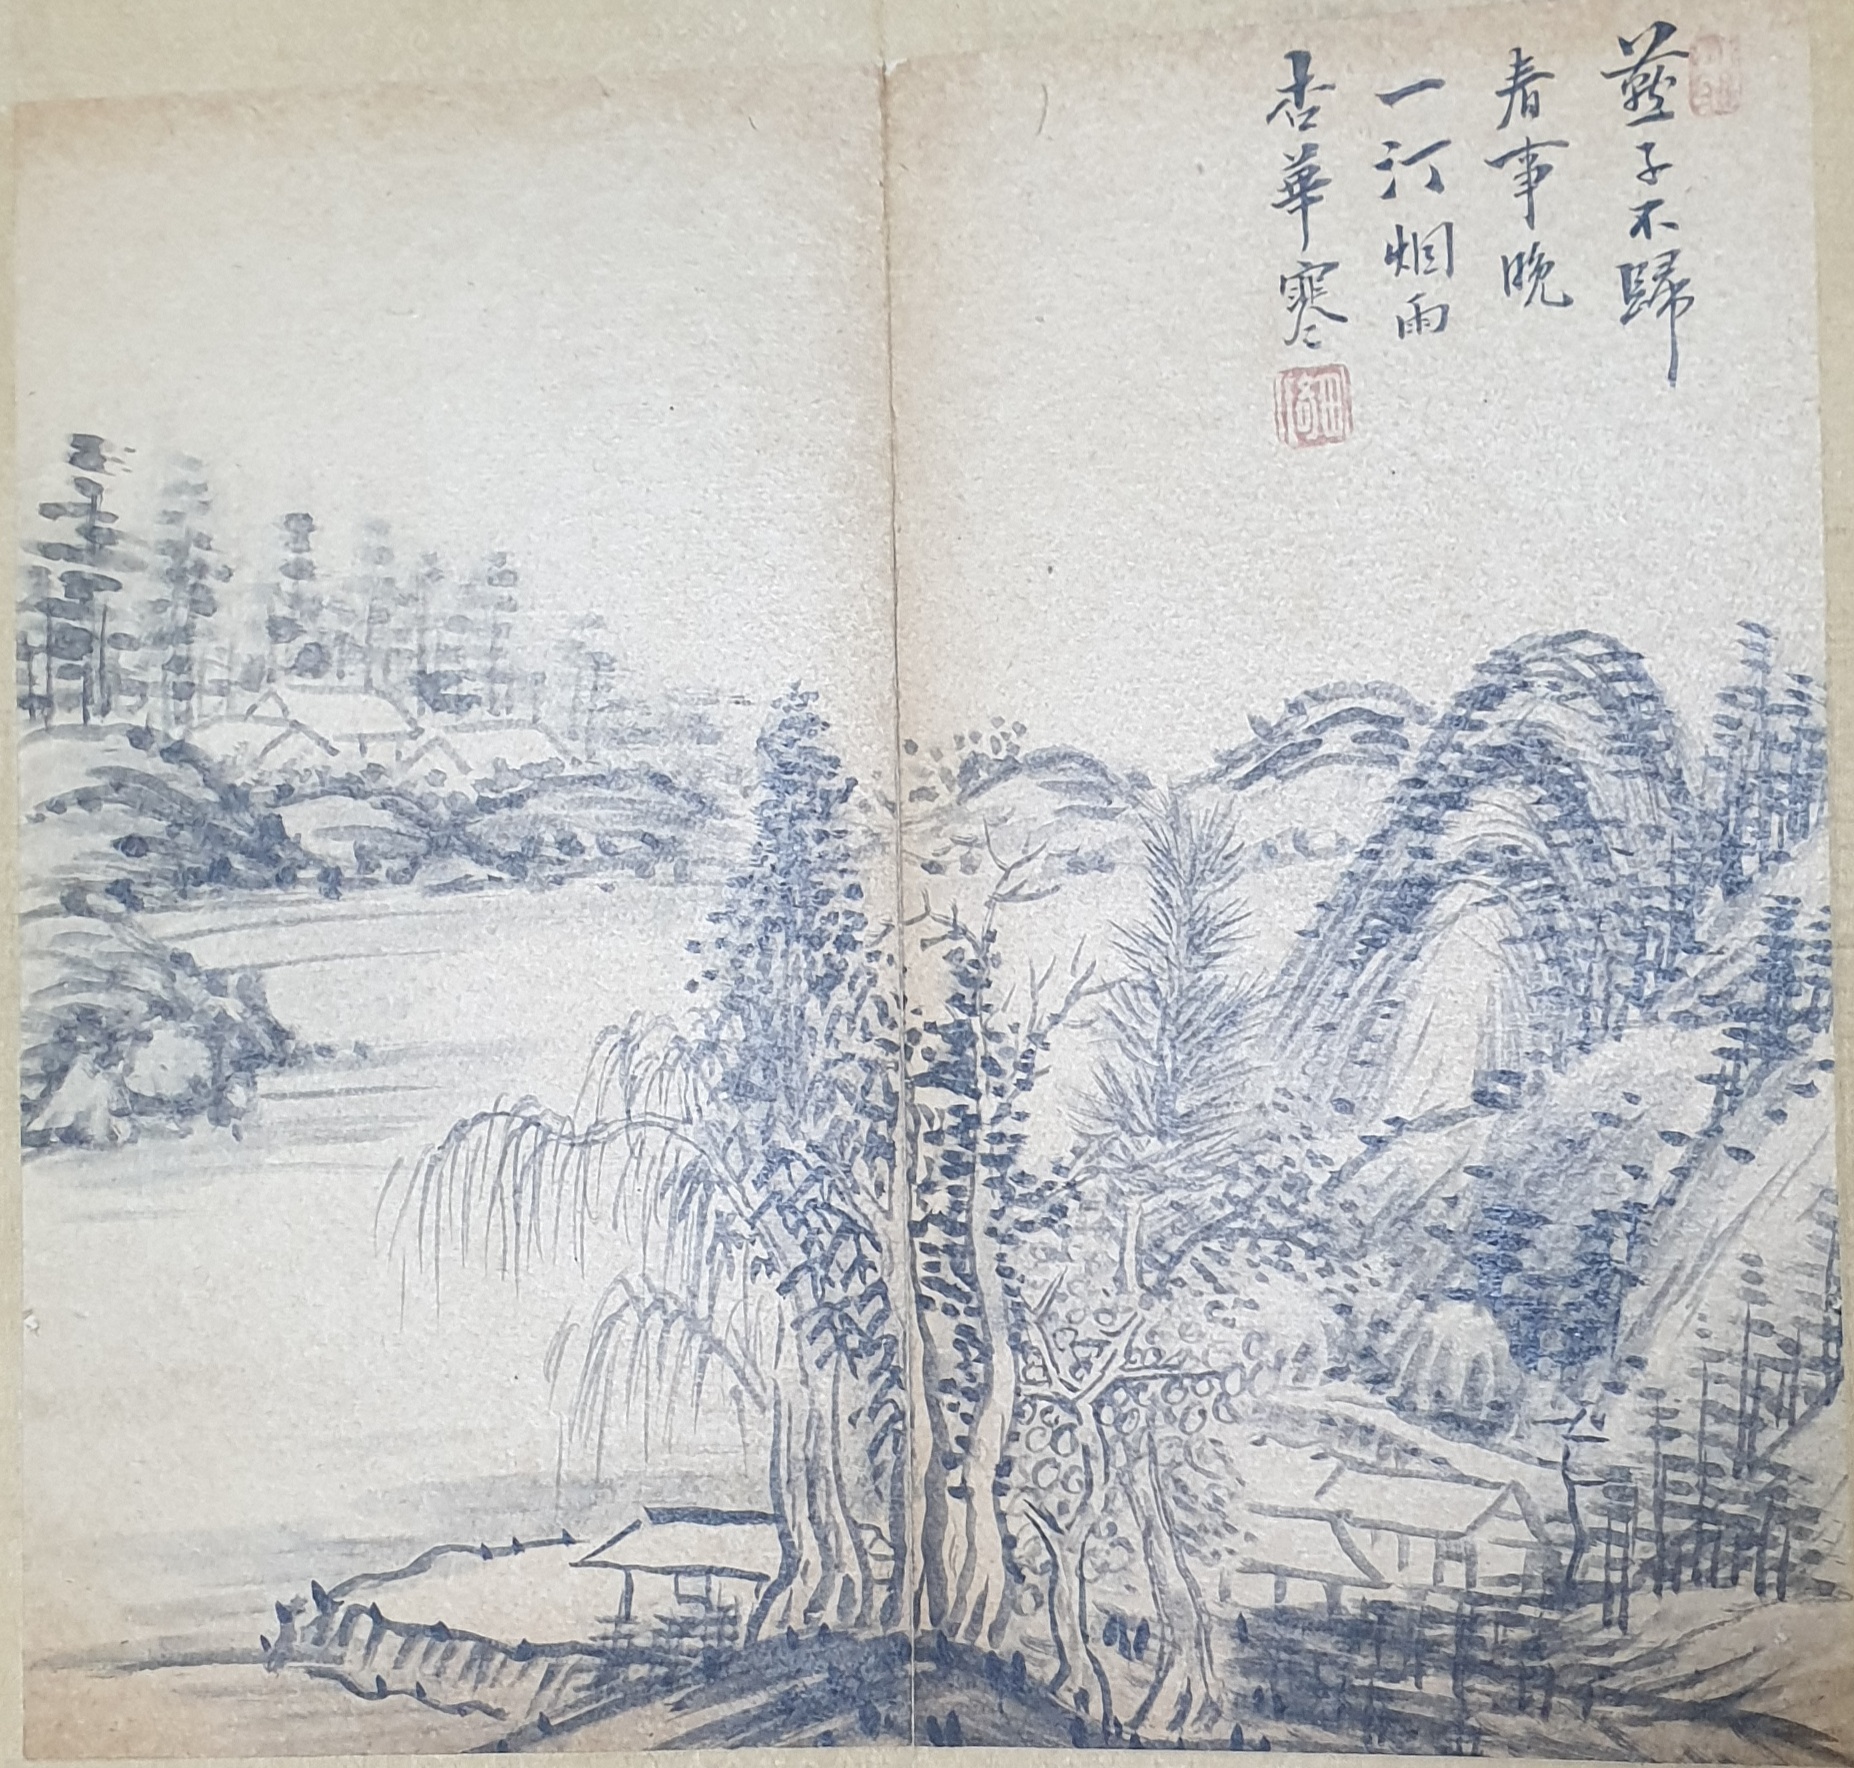 燕子不歸
春事晚
一汀烟雨
杏華寒